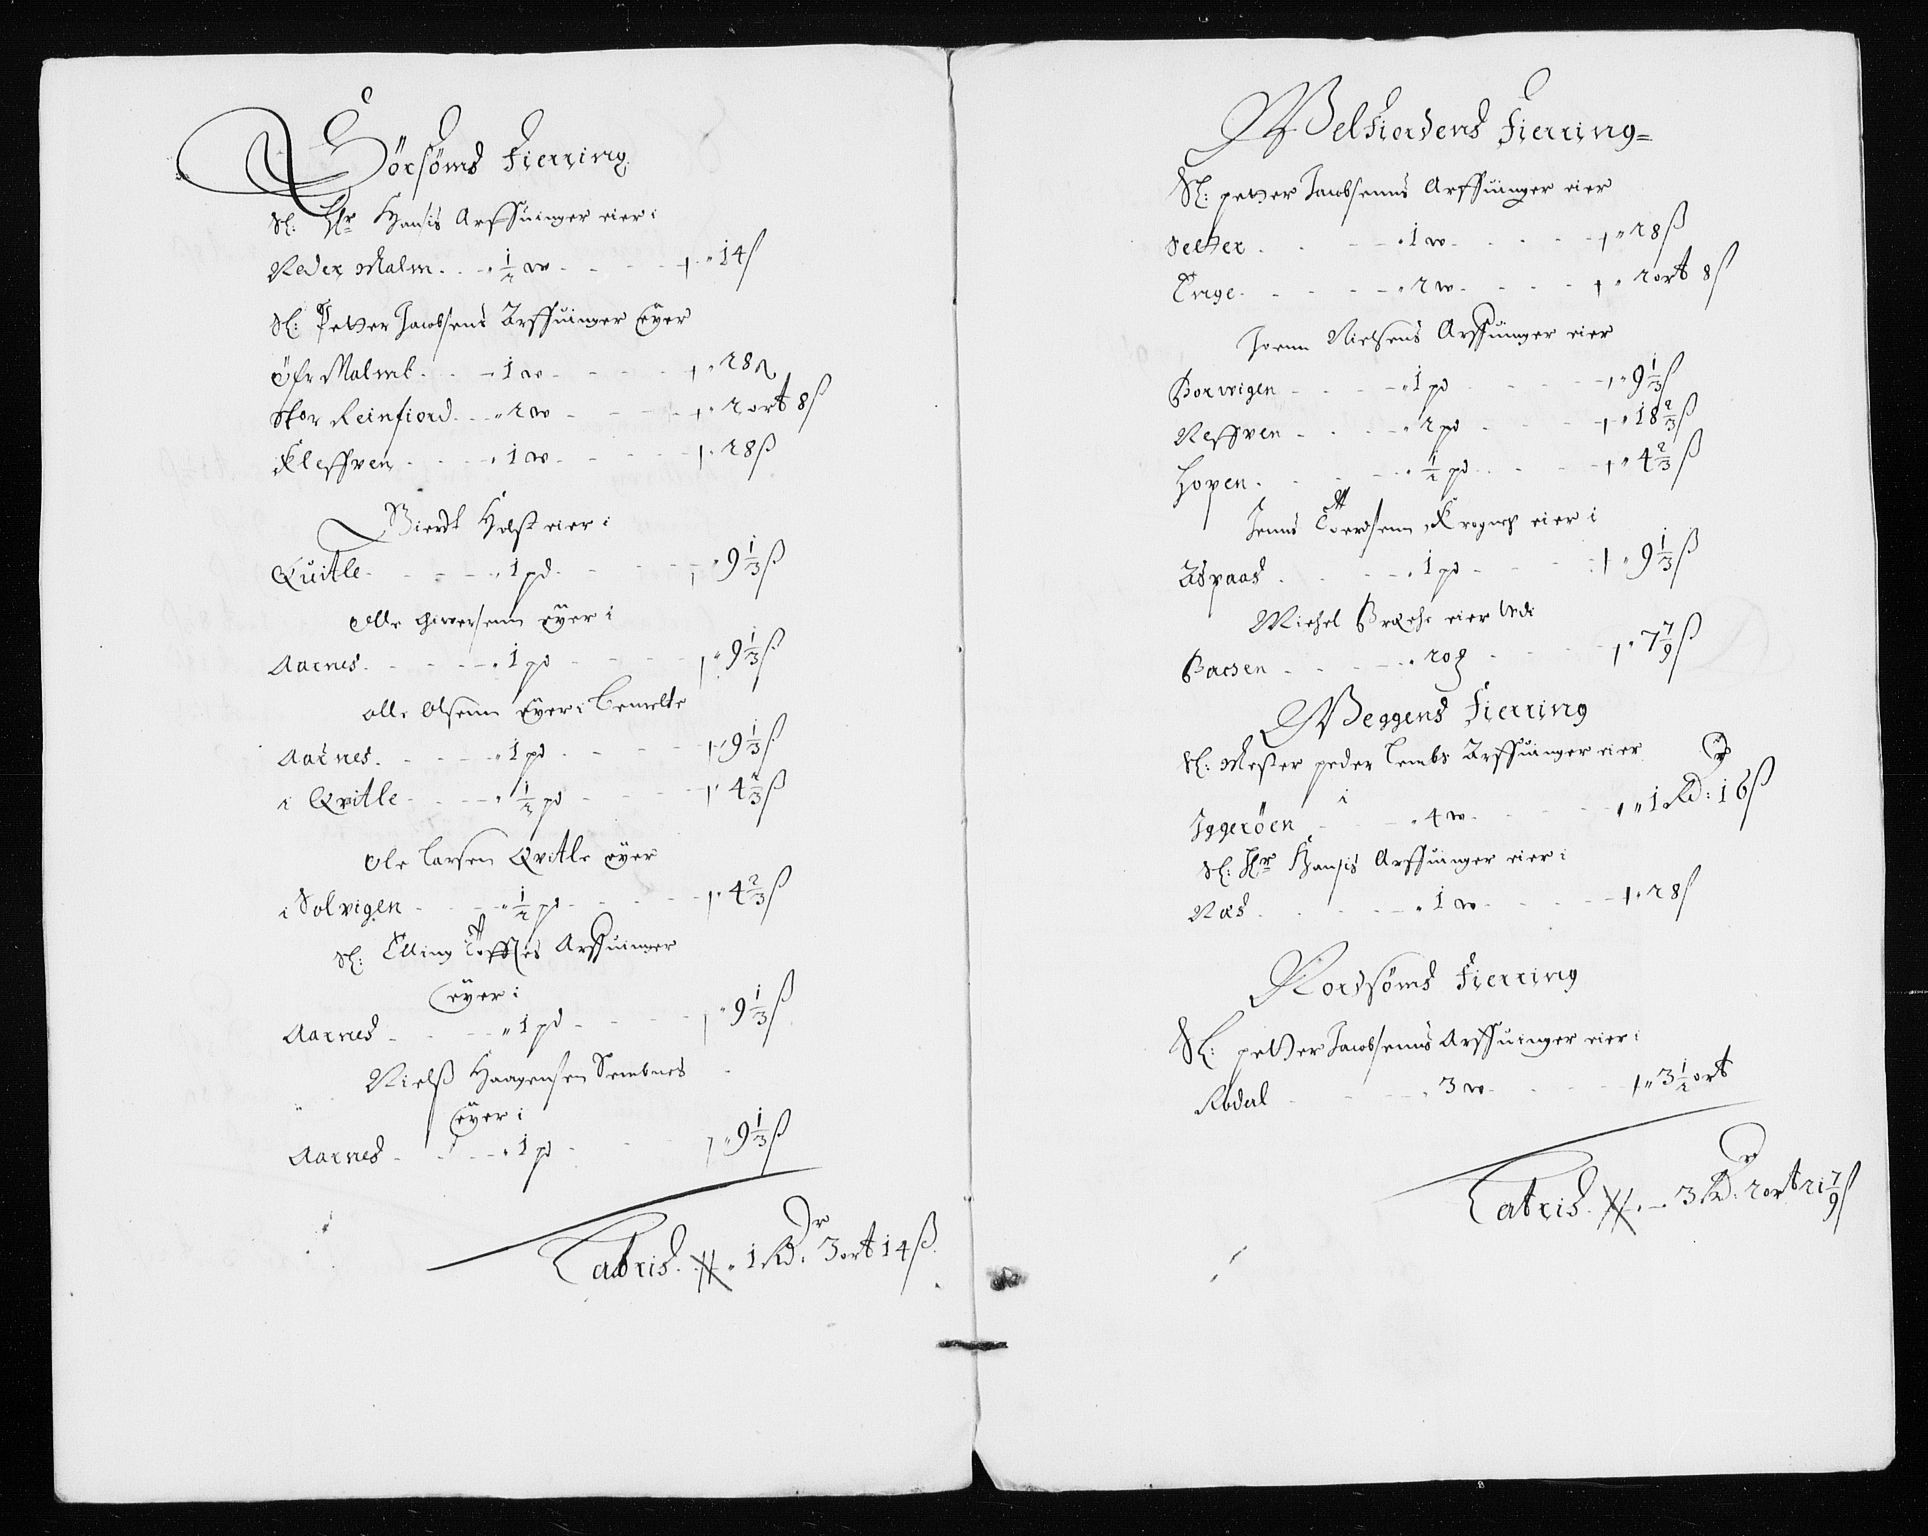 Sörsöms Fierring
Sl: Hr Hansis Arffuinger eier i
Neder Malm - - „ ½ w - - - „ 14 ß
Sl: Petter Jacobsens Arffuinger eyer
Öfr Malmb - - 1 w - - - „ 28 ß
Stor Reinfiord - - „ 2 w - - - „ 2 ort 8 ß
Kleffven - - - „ 1 w - - - „ 28 ß
Giertt Holst eier i
Quitle - - - „ 1 pd - - - „ 9⅓ ß
Olle Hiversenn eyer i
Aarnes - - - „ 1 pd - - - „ 9⅓ ß
Olle Olsenn eyer i bemelte
Aarnes - - - „ 1 pd - - - „ 9⅓ ß
i Qvitle - - - „ ½ pd - - - „ 4⅔ ß
Ole Larsen Qvitle eyer
i Solvigen - - - „ ½ pd - - - „ 4⅔ ß
Sl: Elling Arffuinger
eyer i
Aarnes - - - „ 1 pd - - - „ 9⅓ ß
Nielß Haagensen Sembnes
eyer i
Aarnes - - - „ 1 pd - - - „ 9⅓ ß
Latris - „ 1 Rdr 3 ort 14 ß
Welfiordens Fierring
Sl: petter Jacobsenns Arffuinger eier
Setter - - - „ 1 w - - - „ 28 ß
Tirge - - - „ 2 w - - - „ 2 ort 8 ß
Joenn Nielsens Arffuinger eier
Borvigen - - - „ 1 pd - - - „ 9⅓ ß
Neffven - - - „ 2 pd - - - „ 18⅔ ß
Hopen - - - „ ½ pd - - - „ 4⅔ ß
Jenns eier i
Aspaas - - - „ 1 pd - - - „ 9⅓ ß
Michel eier udi
Barsen - - - „ 20 - - - „ 7 7/9 ß
Weggens Fierring
Sl: Mester peder Lembs Arffuinger eier
i
Iggeröen - - „ 4 w - - - „ 1 Rdr: 16 ß
Sl: Hr Hansis Arffuinger eier i
Næs - - - „ 1 w - - - „ 28 ß
Nordsöms Fierring
Sl: petter Jacobsenns Arffuinger eier i
Rødal - - - „ 3 w - - - „ 3½ ort
Latris - „ 3 Rdr 2 ort 21 7/9 ß